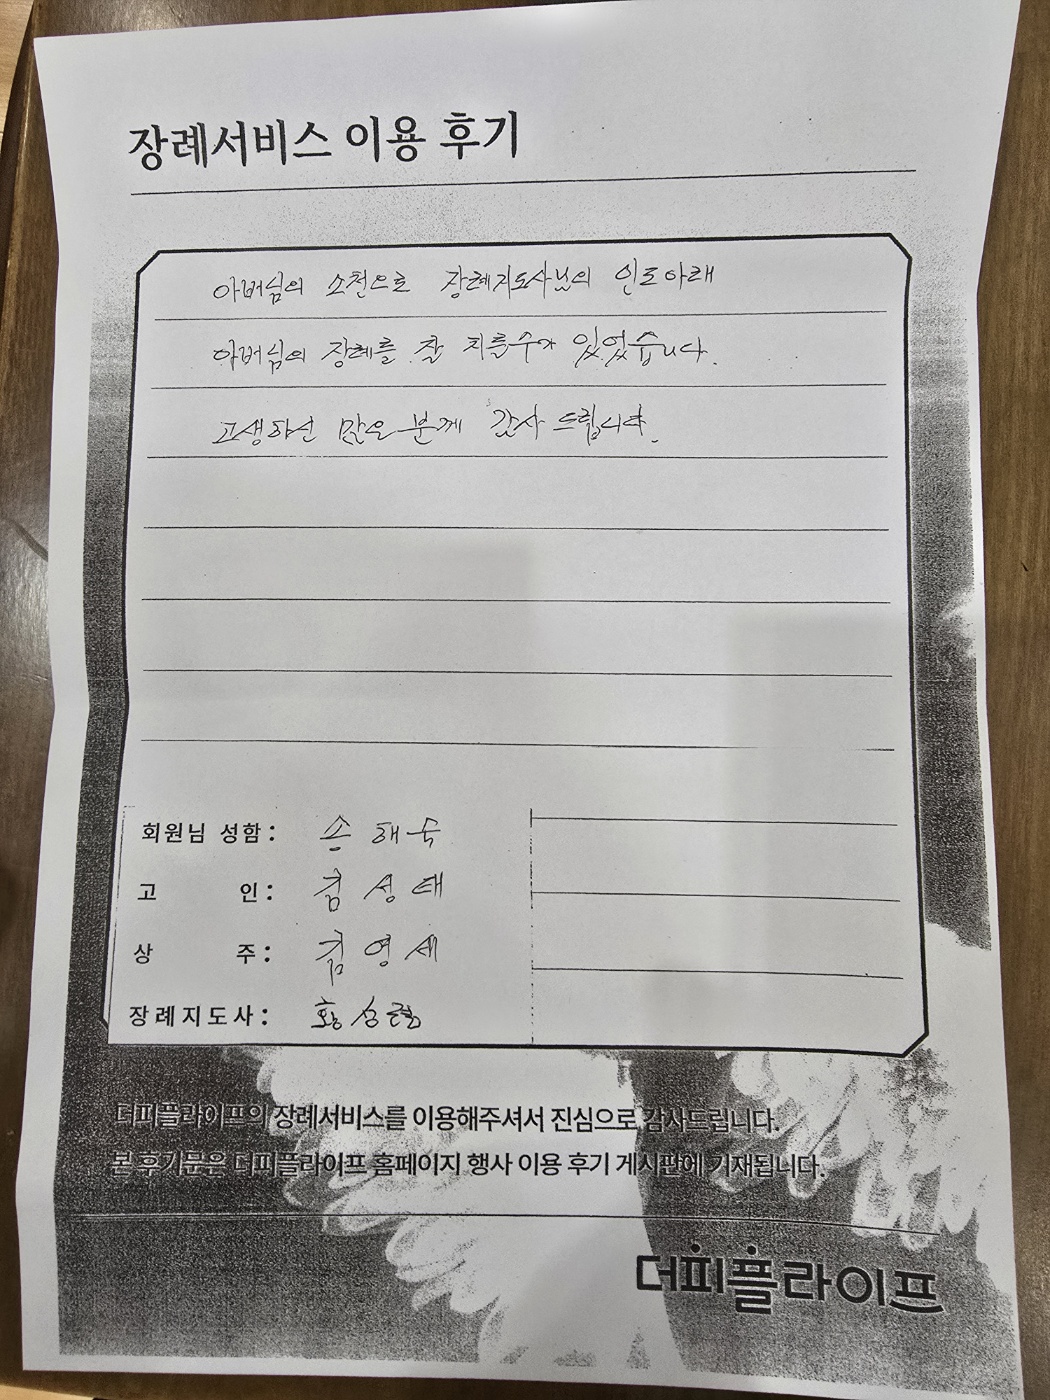 장례서비스 이용 후기
아버님의 소천으로 장례지도사님의 인도아래
아버님의 장례를 잘 치를수가 있었습니다.
고생하신 많은 분께 감사 드립니다.
회원님 성함: 손 해 숙
고 인: 김 성 태
상 주: 김 영 세
장례지도사: 황 성
더피플라이프의 장례서비스를 이용해주셔서 진심으로 감사드립니다.
본 후기문은 더피플라이프 홈페이지 행사 이용 후기 게시판에 기재됩니다.
더피플라이프